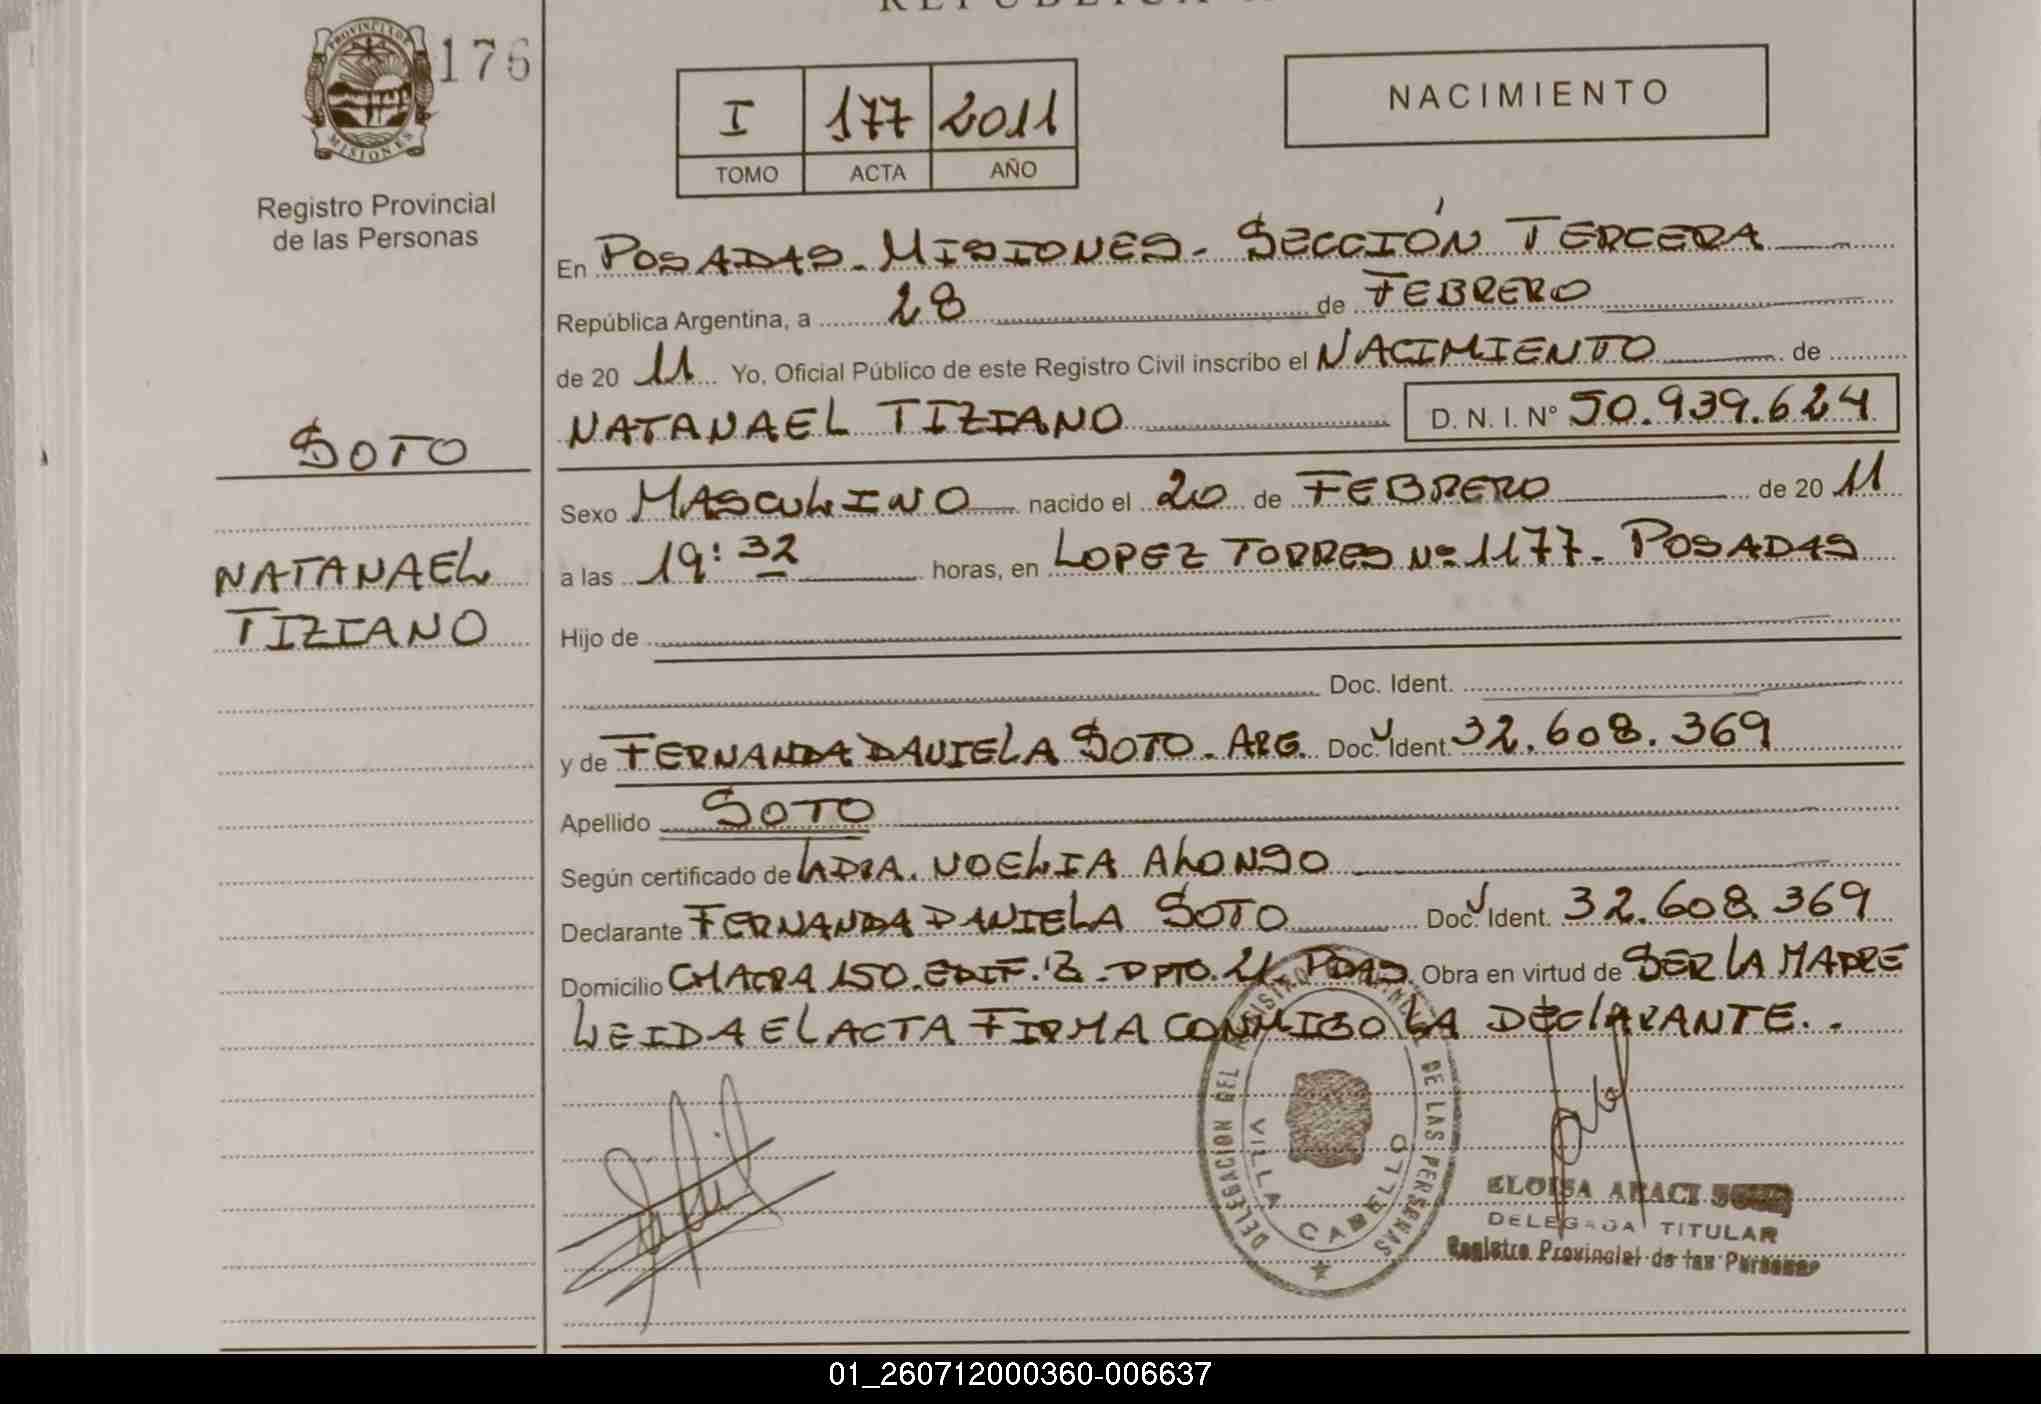 PROVINCIA DE
MISIONES
176
Registro Provincial
de las Personas
SOTO
NATANAEL
TIZIANO
I 177 2011
TOMO ACTA AÑO
NACIMIENTO
En POSADAS - MISIONES - SECCIÓN TERCERA
República Argentina, a 28 de FEBRERO
de 20 11 Yo, Oficial Público de este Registro Civil inscribo el NACIMIENTO de
NATANAEL TIZIANO D. N. I. Nº 50.939.624
Sexo MASCULINO nacido el 20 de FEBRERO de 20 11
a las 19:32 horas, en LOPEZ TORRES Nº 1177 - POSADAS
Hijo de
Doc. Ident.
y de FERNANDA DANIELA SOTO - ARG. Doc. Ident. 32.608.369
Apellido SOTO
Según certificado de LDIA. NOELIA ALONSO
Declarante FERNANDA DANIELA SOTO Doc. Ident. 32.608.369
Domicilio CHACRA 150 - EDIF. - DPTO. 21 PDAS Obra en virtud de SER LA MADRE
LEIDA EL ACTA FIRMA CONMIGO LA DECLARANTE..
DELEGACION DEL REGISTRO DE LAS PERSONAS
VILLA CABELLO
ELOISA ARACI
DELEGADA TITULAR
Registro Provincial de las Personas
01_260712000360-006637